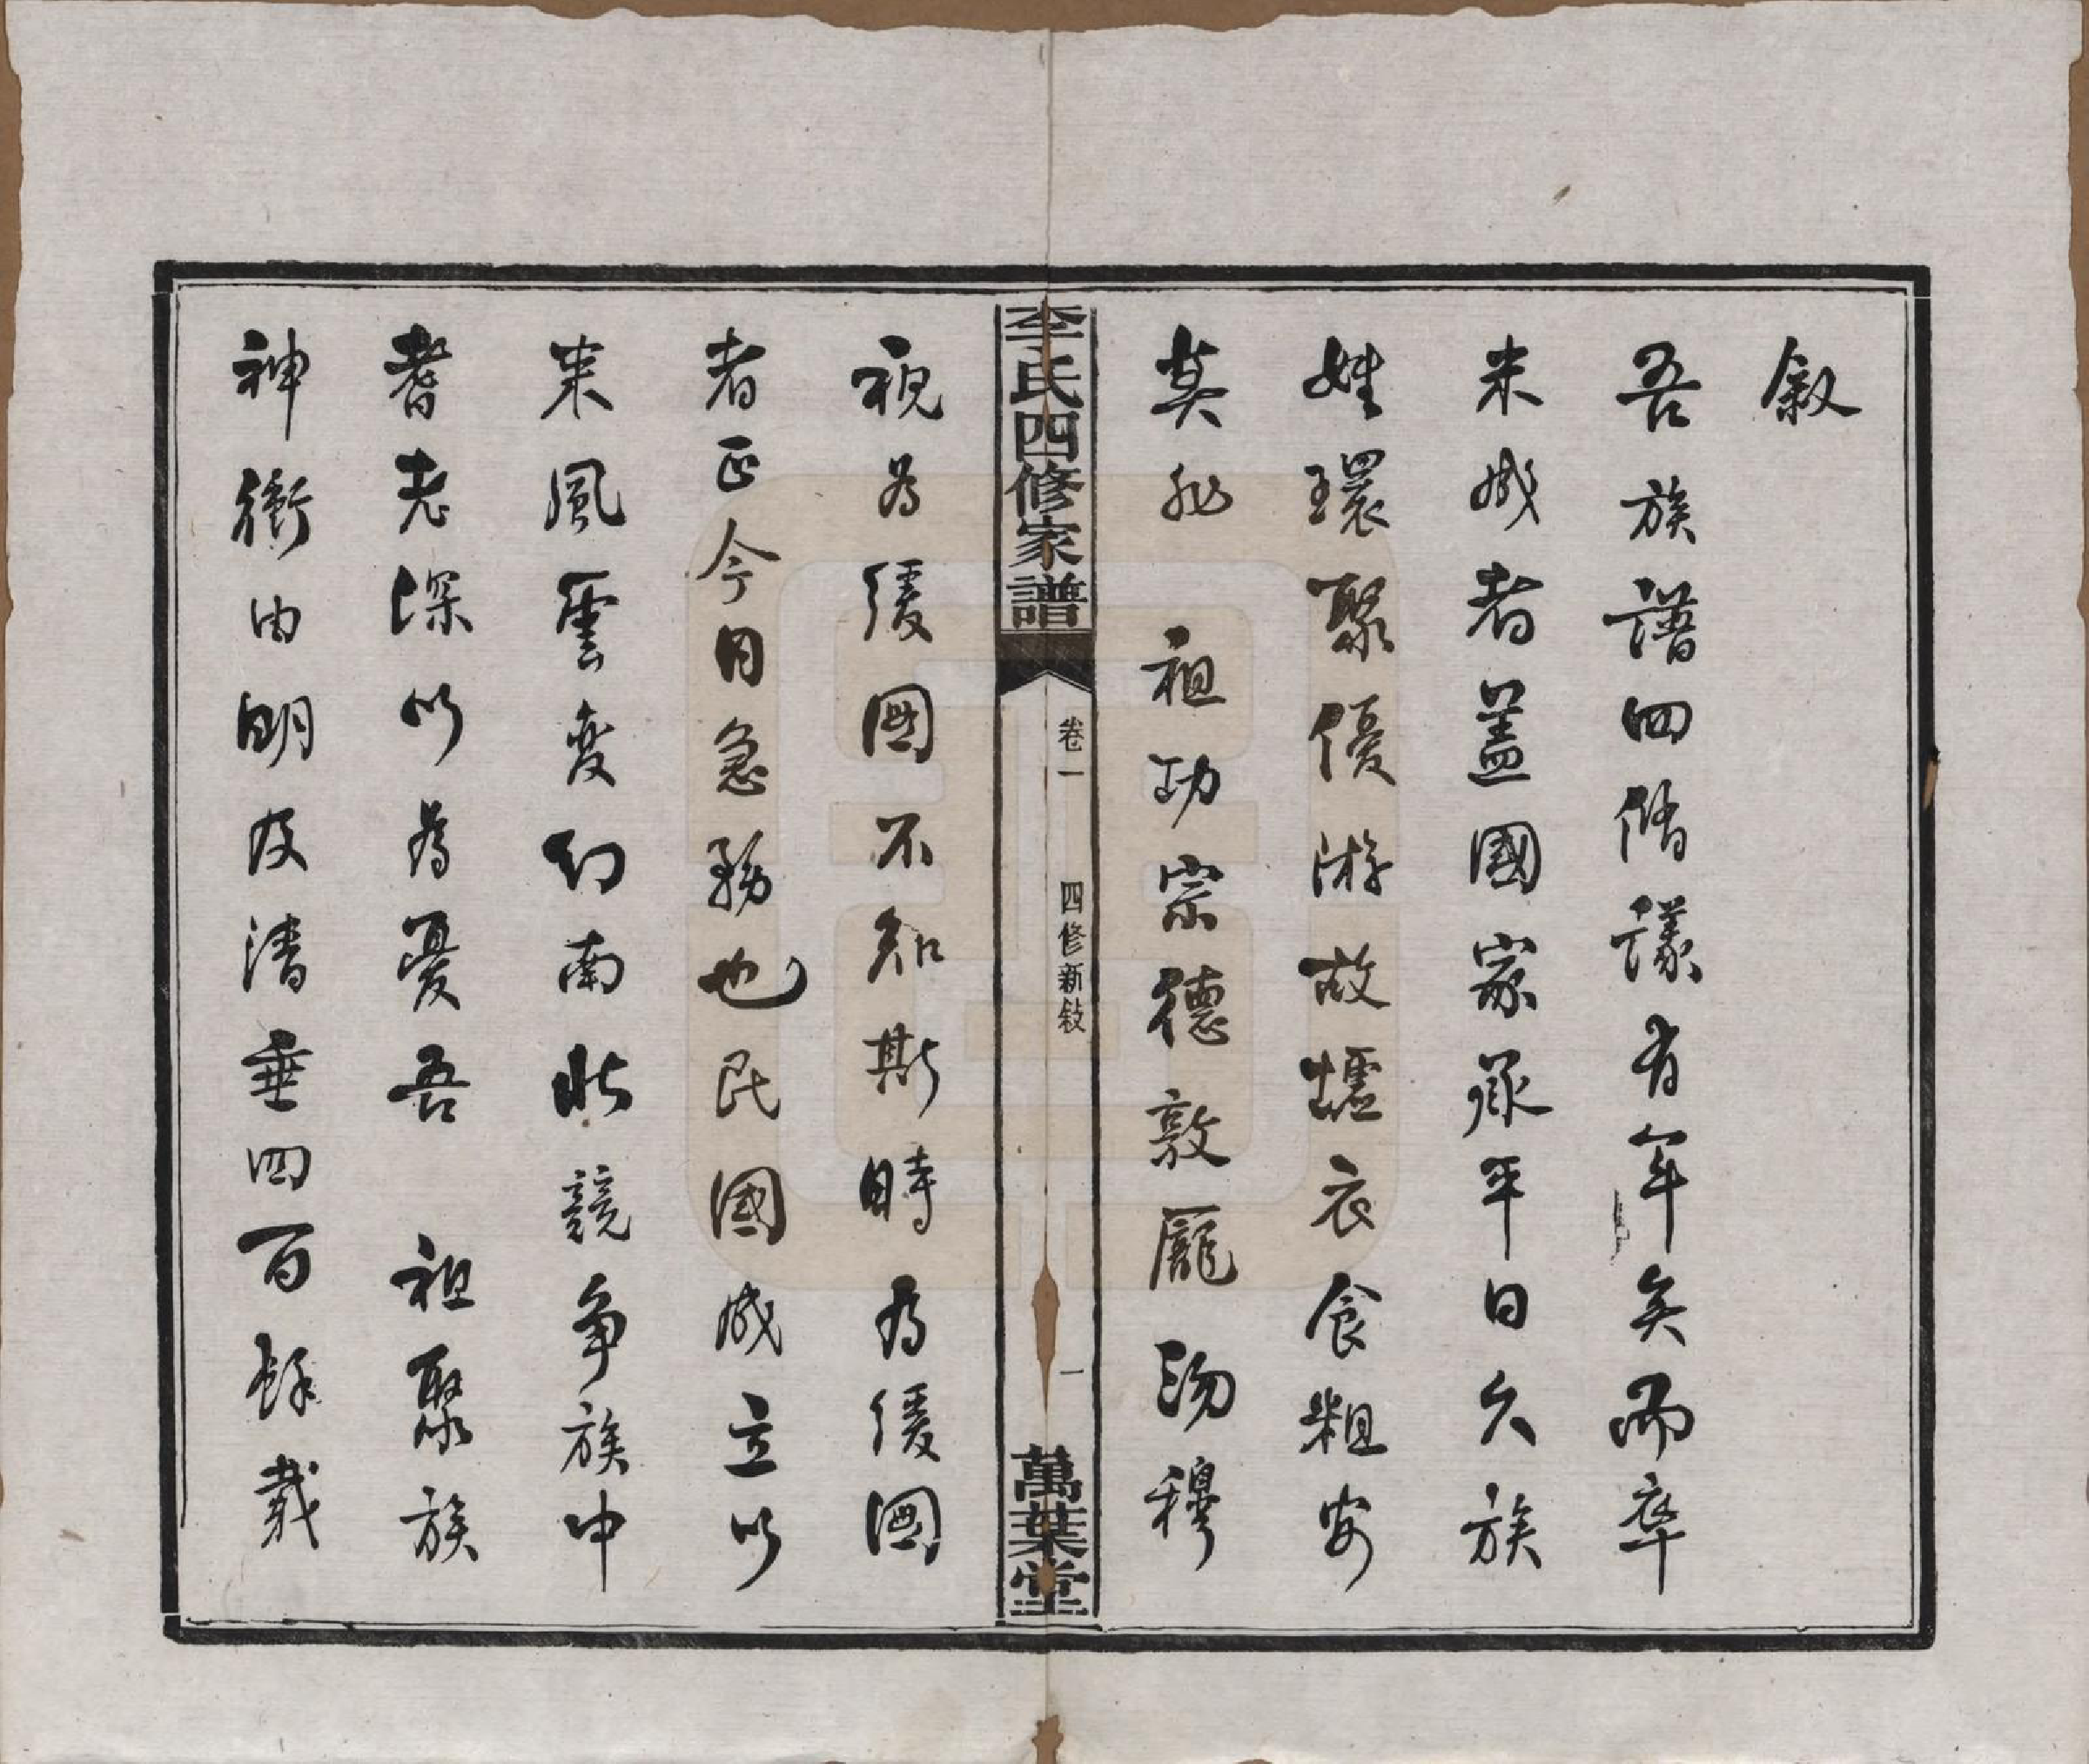 叙
吾族譜四修議有年矣而卒
未成者蓋國家承平日久族
姓環聚優游故墟衣食粗安
莫非 祖功宗德敦龐沕穆
李氏四修家譜 卷一 四修新敍 一 萬葉堂
視為緩圖不知斯時為緩圖
者正今日急務也民國成立以
来風雲变幻南北競爭族中
耆老深以為憂吾 祖聚族
神衝由明及清垂四百餘載